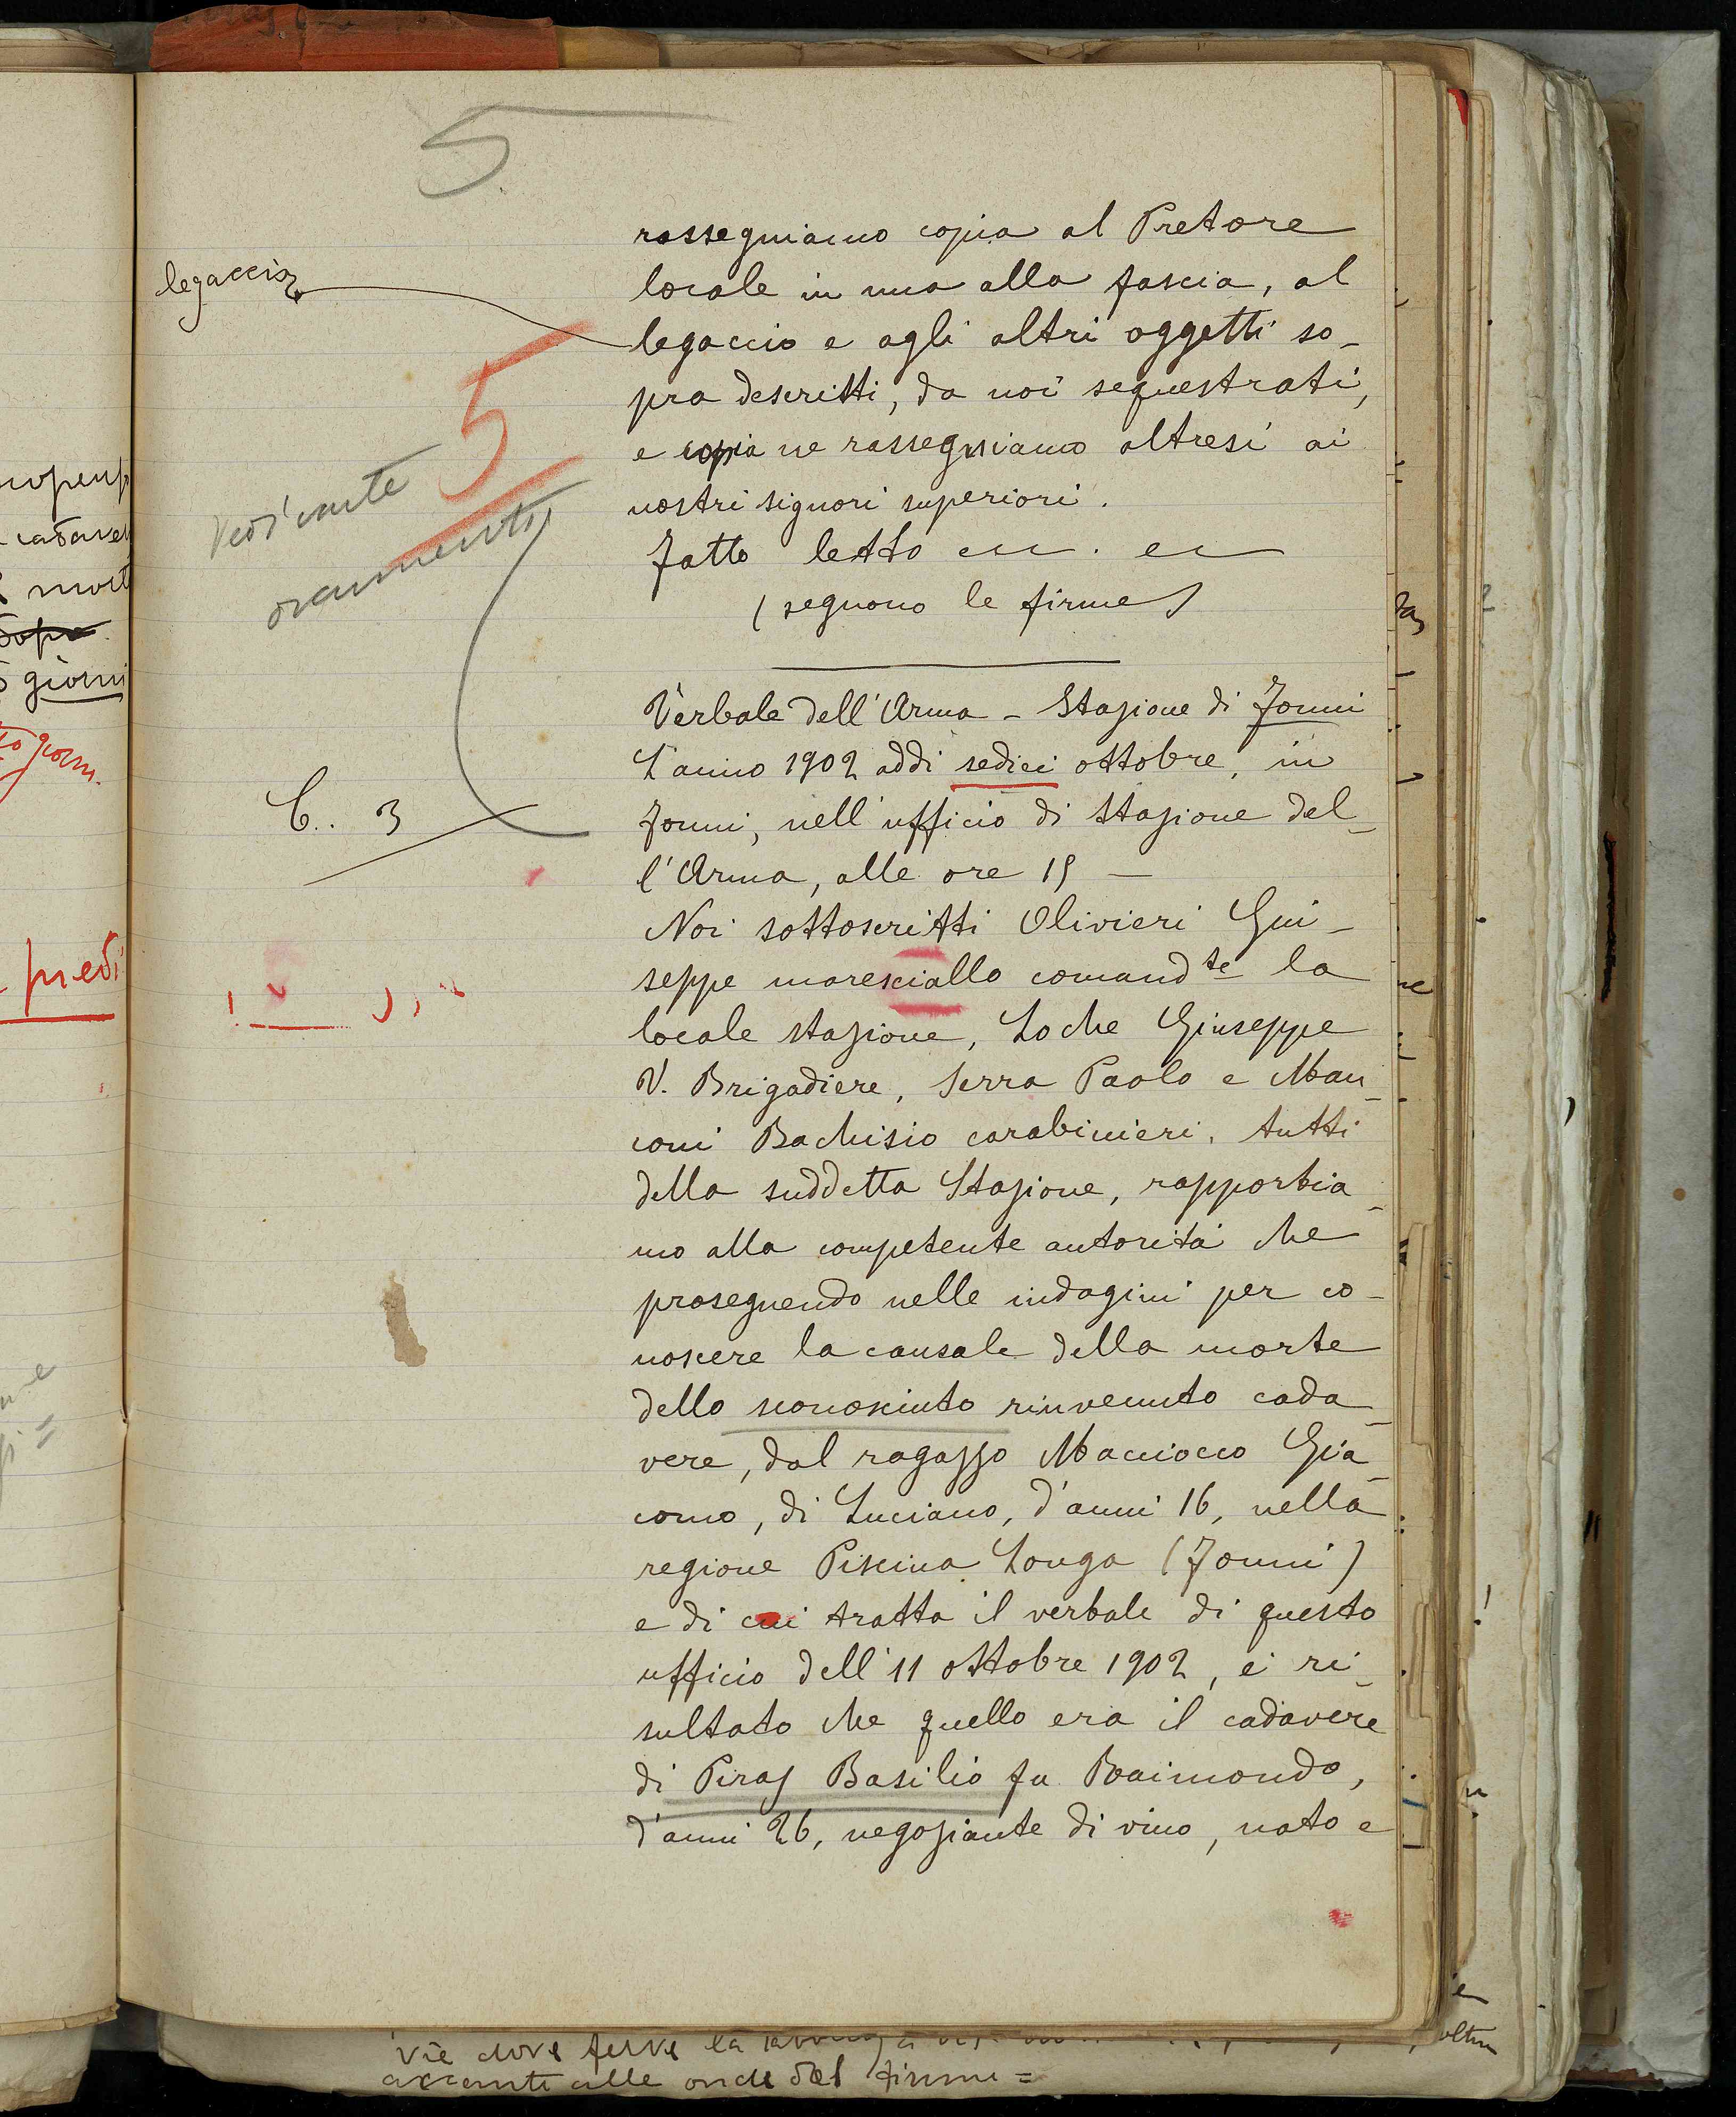 5
rassegniamo copia al Pretore
legaccio
locale in una alla fascia, al
legaccio e agli altri oggetti so-
5
pra descritti, da noi sequestrati,
e copia ne rassegniamo altresì ai
nostri signori superiori.
Fatto letto
(seguono le firme)
Verbale dell'Arma - Stazione di Fonni
L'anno 1902 addì sedici ottobre, in
C.. 3
Fonni, nell'ufficio di Stazione del-
l'Arma, alle ore 15 —
Noi sottoscritti Olivieri Giu-
seppe maresciallo comandte la
locale stazione, Loche Giuseppe
V. Brigadiere, Serra Paolo e Man-
coni Bachisio carabinieri, tutti
della suddetta Stazione, rapportia-
mo alla competente autorità che
proseguendo nelle indagini per co-
noscere la causale della morte
dello sconosciuto rinvenuto cada-
vere, dal ragazzo Macciocco Gia-
como, di Luciano, d'anni 16, nella
regione Piscina Longa (Fonni)
e di cui tratta il verbale di questo
ufficio dell'11 ottobre 1902, è ri-
sultato che quello era il cadavere
di Piras Basilio fu Raimondo,
d'anni 26, negoziante di vino, nato e
cadaver
mort
dopo
giorni
giorn.
piedi
accanto alle onde del fiume =